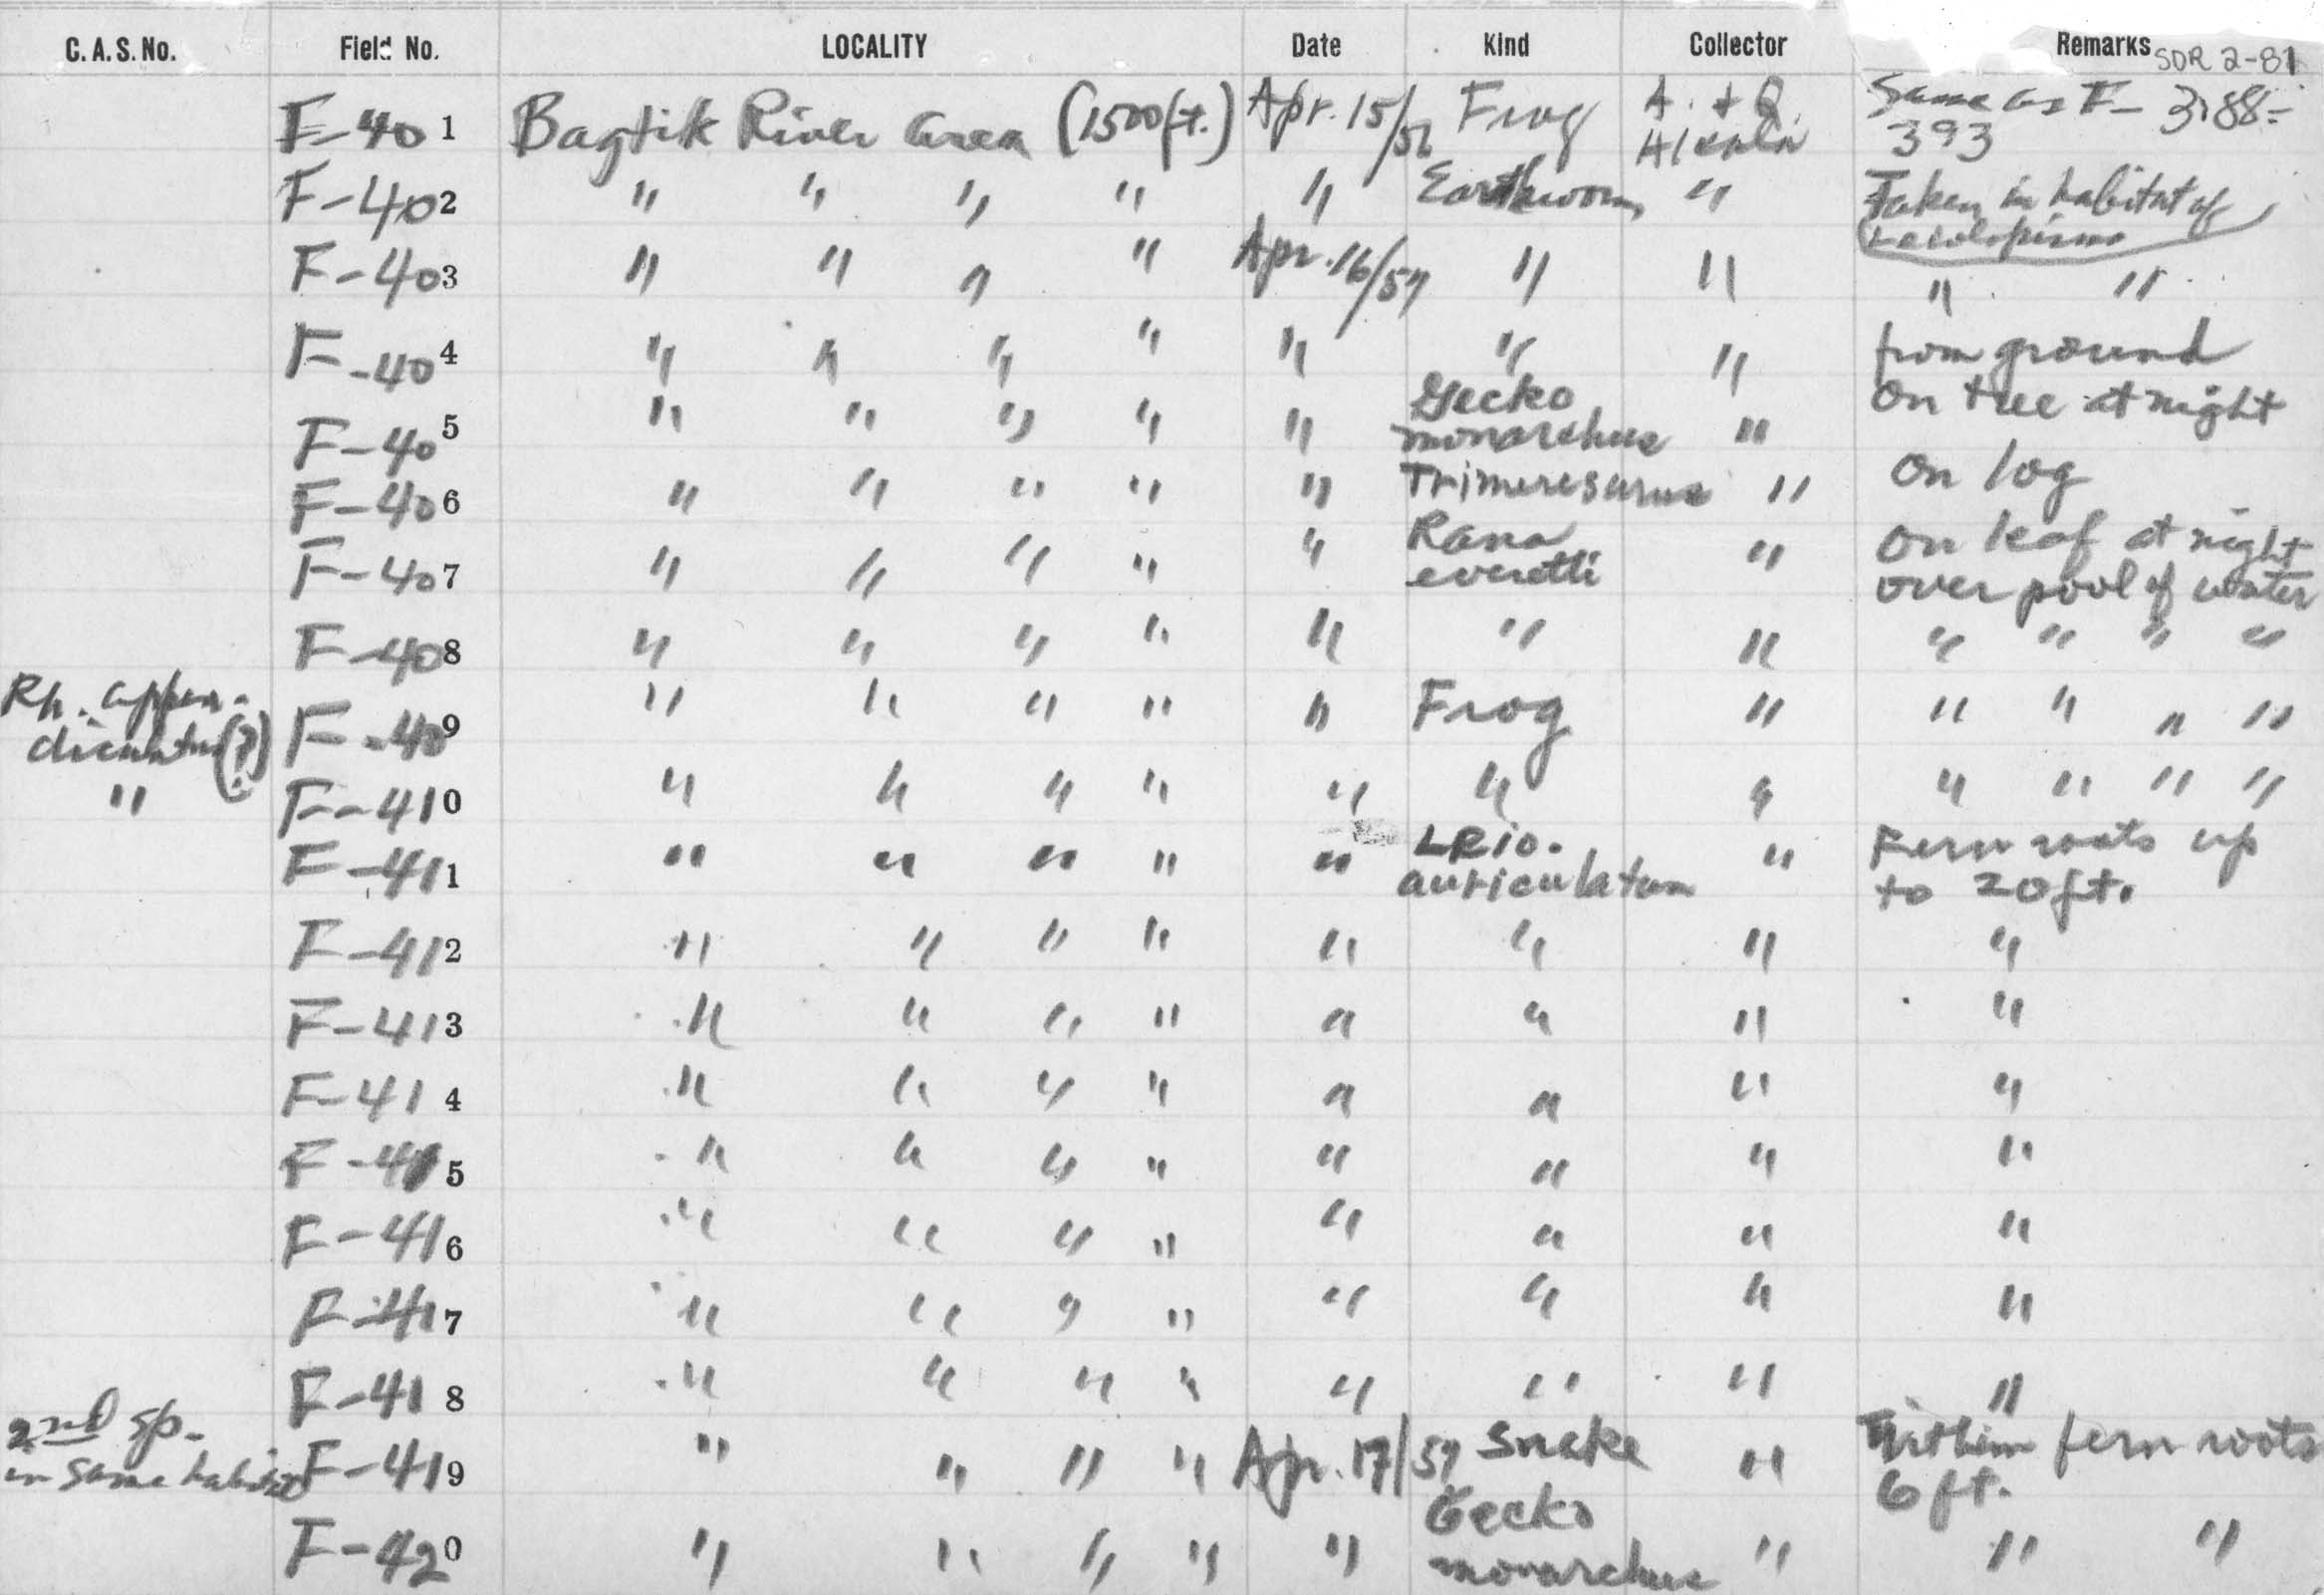 C. A. S. No. Field No. LOCALITY Date Kind Collector Remarks SDR 2-81
F-401 Bagtik River area (1500 ft.) Apr. 15/ Frog A. & Q. Alcala Same as F- 388-393
F-402 " " " " " Earthworm " Taken in habitat of
F-403 " " " " Apr. 16/57 " " " "
F-404 " " " " " " " from ground
F-405 " " " " " Gecko monarchus " on tree at night
F-406 " " " " " Trimeresurus " on log
F-407 " " " " " Rana everetti " on leaf at night over pool of water
F-408 " " " " " " " " " " "
Rh. appen-diculatus(?) F-409 " " " " " Frog " " " " "
" F-410 " " " " " " " " " " "
F-411 " " " " " Leio. auriculatum " Fern roots up to 20 ft.
F-412 " " " " " " " "
F-413 " " " " " " " "
F-414 " " " " " " " "
F-415 " " " " " " " "
F-416 " " " " " " " "
F-417 " " " " " " " "
F-418 " " " " " " " "
2nd sp. in same habitat F-419 " " " " Apr. 17/57 Snake " Within fern roots 6 ft.
F-420 " " " " " Gecko monarchus " " "